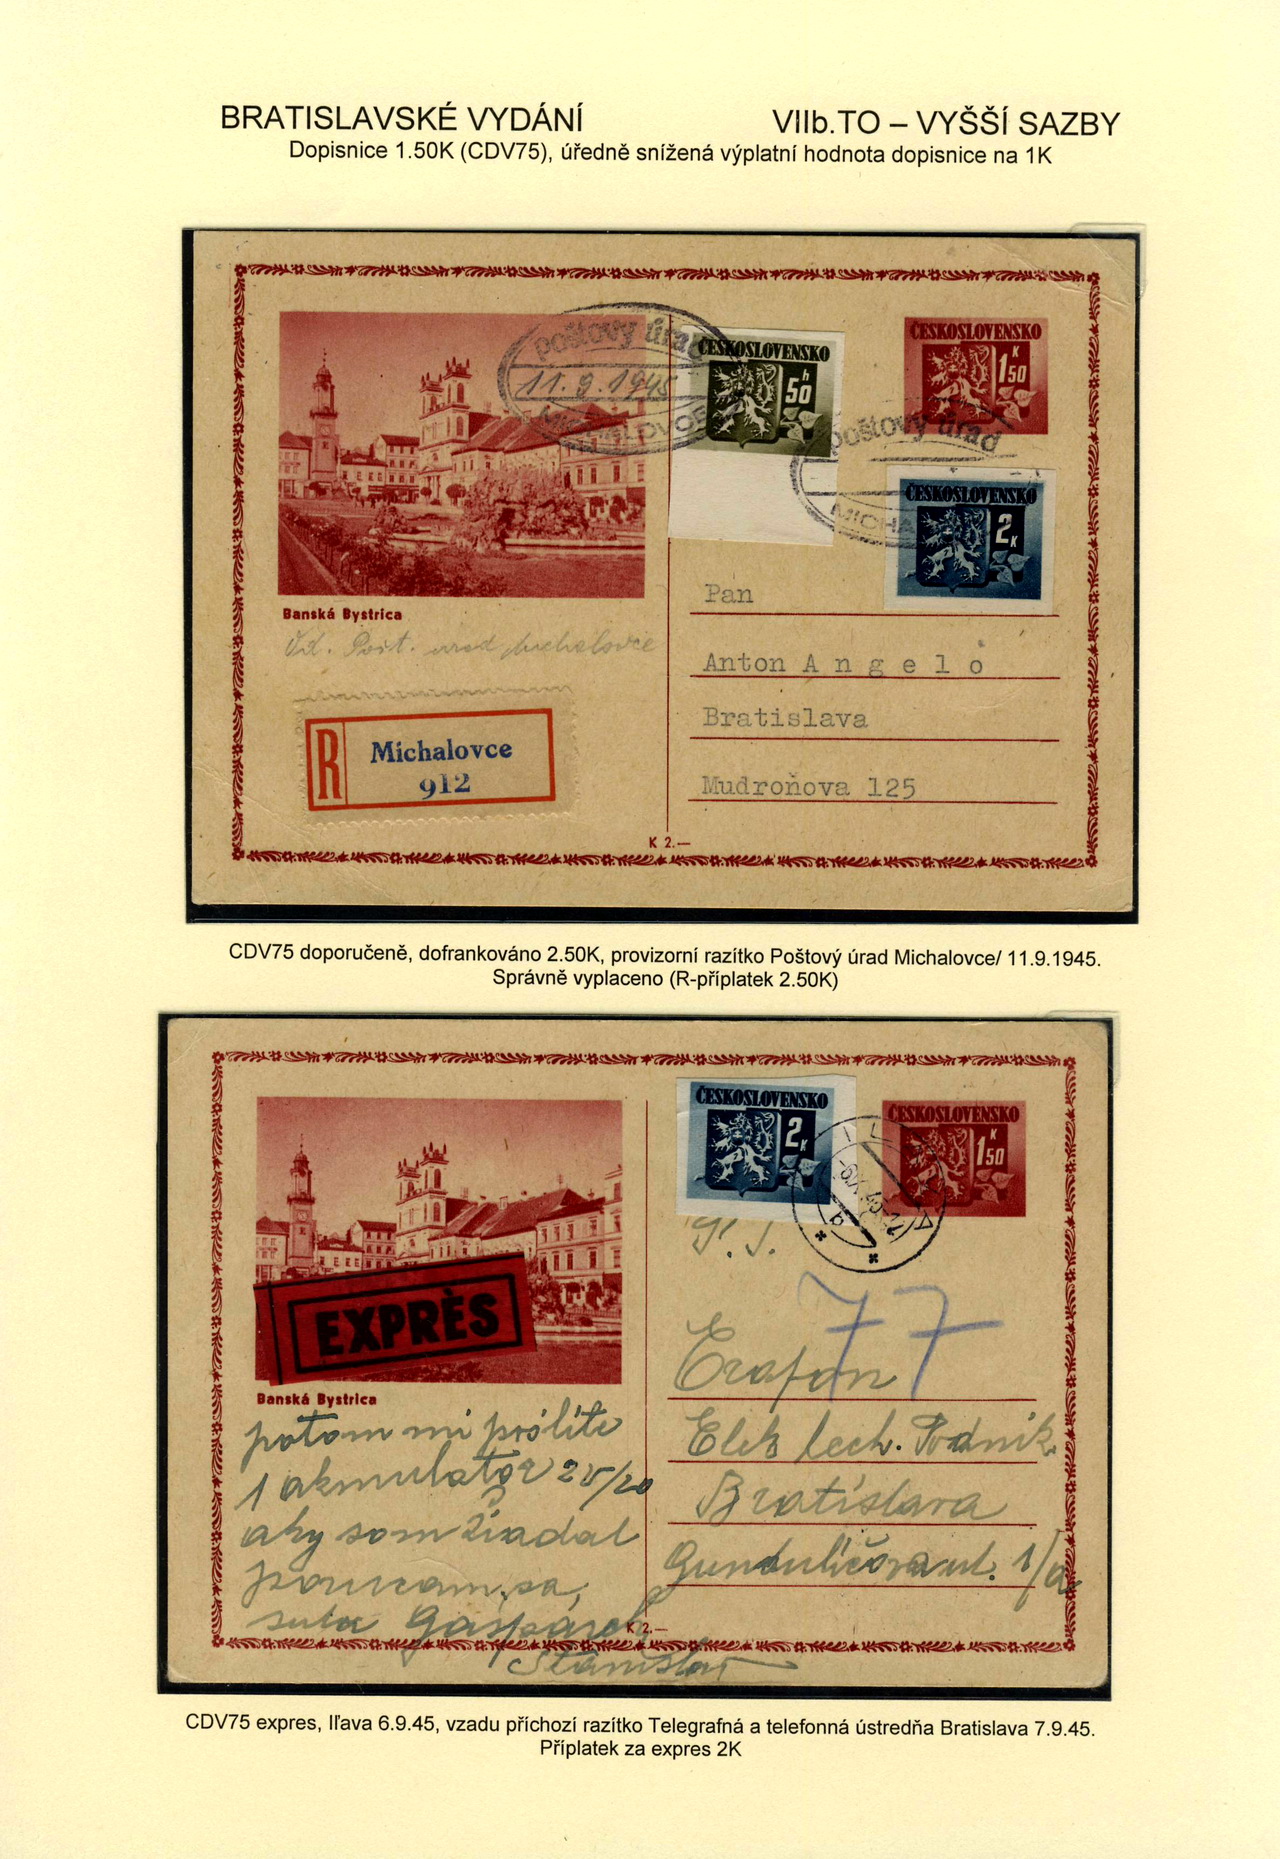 BRATISLAVSKÉ VYDÁNÍ
VIIb.TO – VYŠŠÍ SAZBY
Dopisnice 1.50K (CDV75), úředně snížená výplatní hodnota dopisnice na 1K
poštovy úrad
11.9.1945
MICHALOVCE
ČESKOSLOVENSKO
50 h
ČESKOSLOVENSKO
1 50 K
poštovy úrad
MICHA
ČESKOSLOVENSKO
2 K
Banská Bystrica
Pošt. urad Michalovce
R
Michalovce
912
Pan
Anton A n g e l o
Bratislava
Mudroňova 125
K 2.—
CDV75 doporučeně, dofrankováno 2.50K, provizorní razítko Poštový úrad Michalovce/ 11.9.1945.
Správně vyplaceno (R-příplatek 2.50K)
ČESKOSLOVENSKO
2 K
ČESKOSLOVENSKO
1 50 K
EXPRÈS
Banská Bystrica
77
Elek tech. Podnik.
Bratislava
Gunduličova ul. 1/a
potom mi pošlite
1 akmulator 25/20
aky som žiadal
porucam sa,
Gašpárek
Stanislav
K 2.—
CDV75 expres, Iľava 6.9.45, vzadu příchozí razítko Telegrafná a telefonná ústredňa Bratislava 7.9.45.
Příplatek za expres 2K